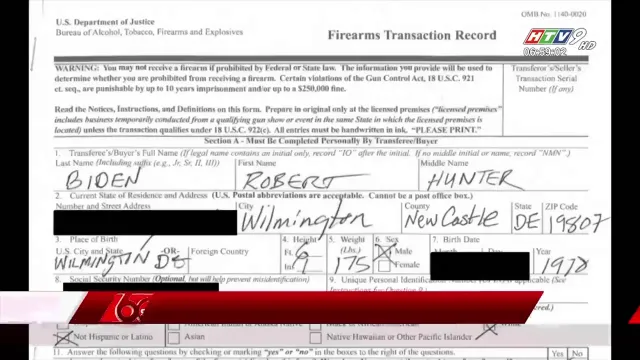 OMB No. 1140-0020
U.S. Department of Justice
Bureau of Alcohol, Tobacco, Firearms and Explosives
Firearms Transaction Record
HTV9 HD
06:59:02
WARNING: You may not receive a firearm if prohibited by Federal or State law. The information you provide will be used to
determine whether you are prohibited from receiving a firearm. Certain violations of the Gun Control Act, 18 U.S.C. 921
et. seq., are punishable by up to 10 years imprisonment and/or up to $250,000 fine.
Transferor's/Seller's
Transaction Serial
Number (If any)
Read the Notices, Instructions, and Definitions on this form. Prepare in original only at the licensed premises ("licensed premises"
includes business temporarily conducted from a qualifying gun show or event in the same State in which the licensed premises is
located) unless the transaction qualifies under 18 U.S.C. 922(c). All entries must be handwritten in ink. "PLEASE PRINT."
Section A - Must Be Completed Personally By Transferee/Buyer
1. Transferee's/Buyer's Full Name (If legal name contains an initial only, record "IO" after the initial. If no middle initial or name, record "NMN".)
Last Name (Including suffix (e.g., Jr, Sr, II, III)) First Name Middle Name
BIDEN ROBERT HUNTER
2. Current State of Residence and Address (U.S. Postal abbreviations are acceptable. Cannot be a post office box.)
Number and Street Address City County State ZIP Code
Wilmington New Castle DE 19807
3. Place of Birth 4. Height 5. Weight 6. Sex 7. Birth Date
U.S. City and State -OR- Foreign Country Ft. (Lbs.) Male Month Day Year
WILMINGTON DE In. 175 Female 1970
8. Social Security Number (Optional, but will help prevent misidentification) 9. Unique Personal Identification Number (UPIN)
Not Hispanic or Latino Asian Native Hawaiian or Other Pacific Islander
11. Answer the following questions by checking or marking "yes" or "no" in the boxes to the right of the questions. Yes No